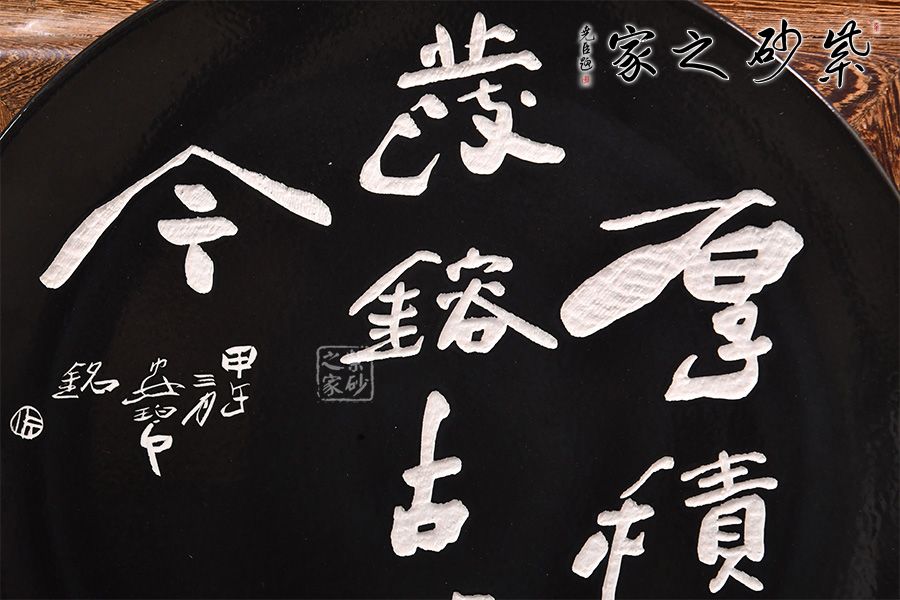 紫砂之家
堯臣題
厚積
發鎔古
今
甲午
三月
銘
紫砂之家